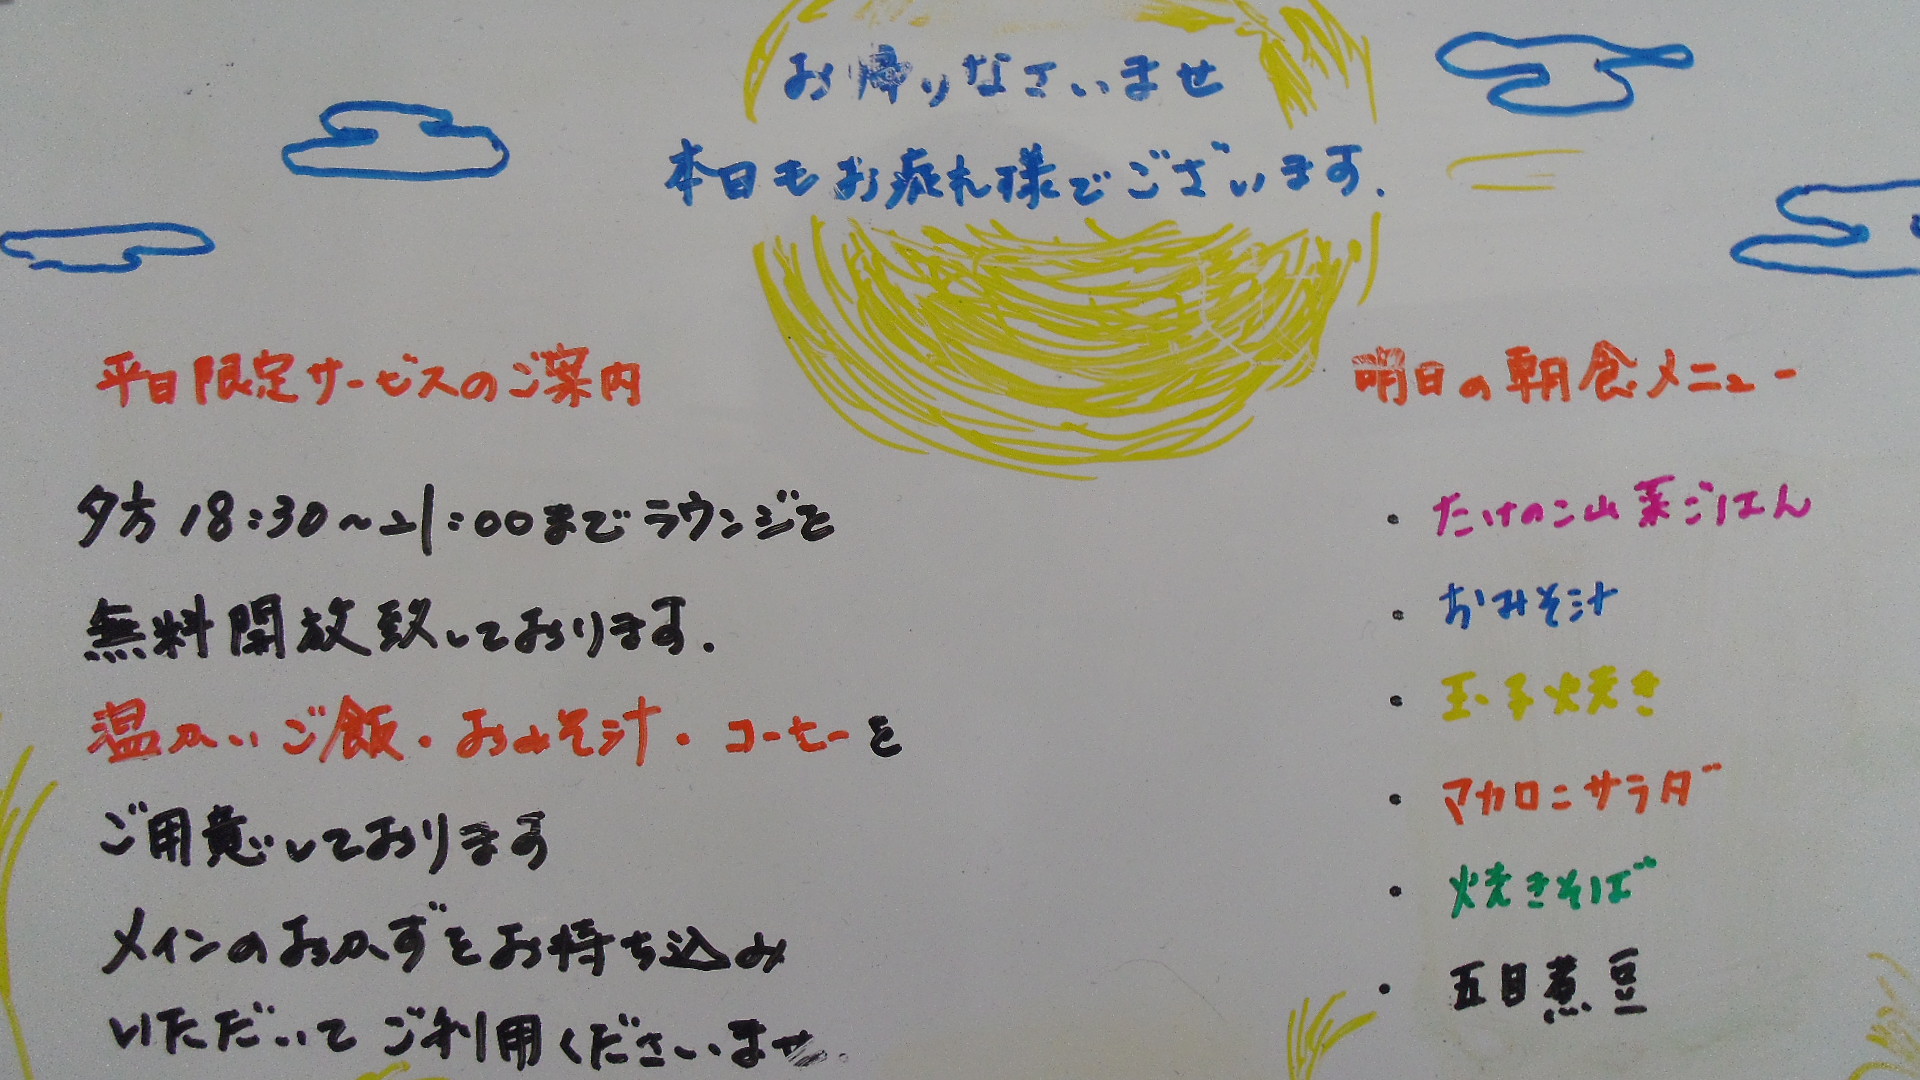 お帰りなさいませ
本日もお疲れ様でございます.
平日限定サービスのご案内
夕方18:30～21:00までラウンジを
無料開放致しております.
温かいご飯・おみそ汁・コーヒーを
ご用意しております
メインのおかずをお持ち込み
いただいてご利用くださいませ.
明日の朝食メニュー
・たけのこ山菜ごはん
・おみそ汁
・玉子焼き
・マカロニサラダ
・焼きそば
・五目煮豆